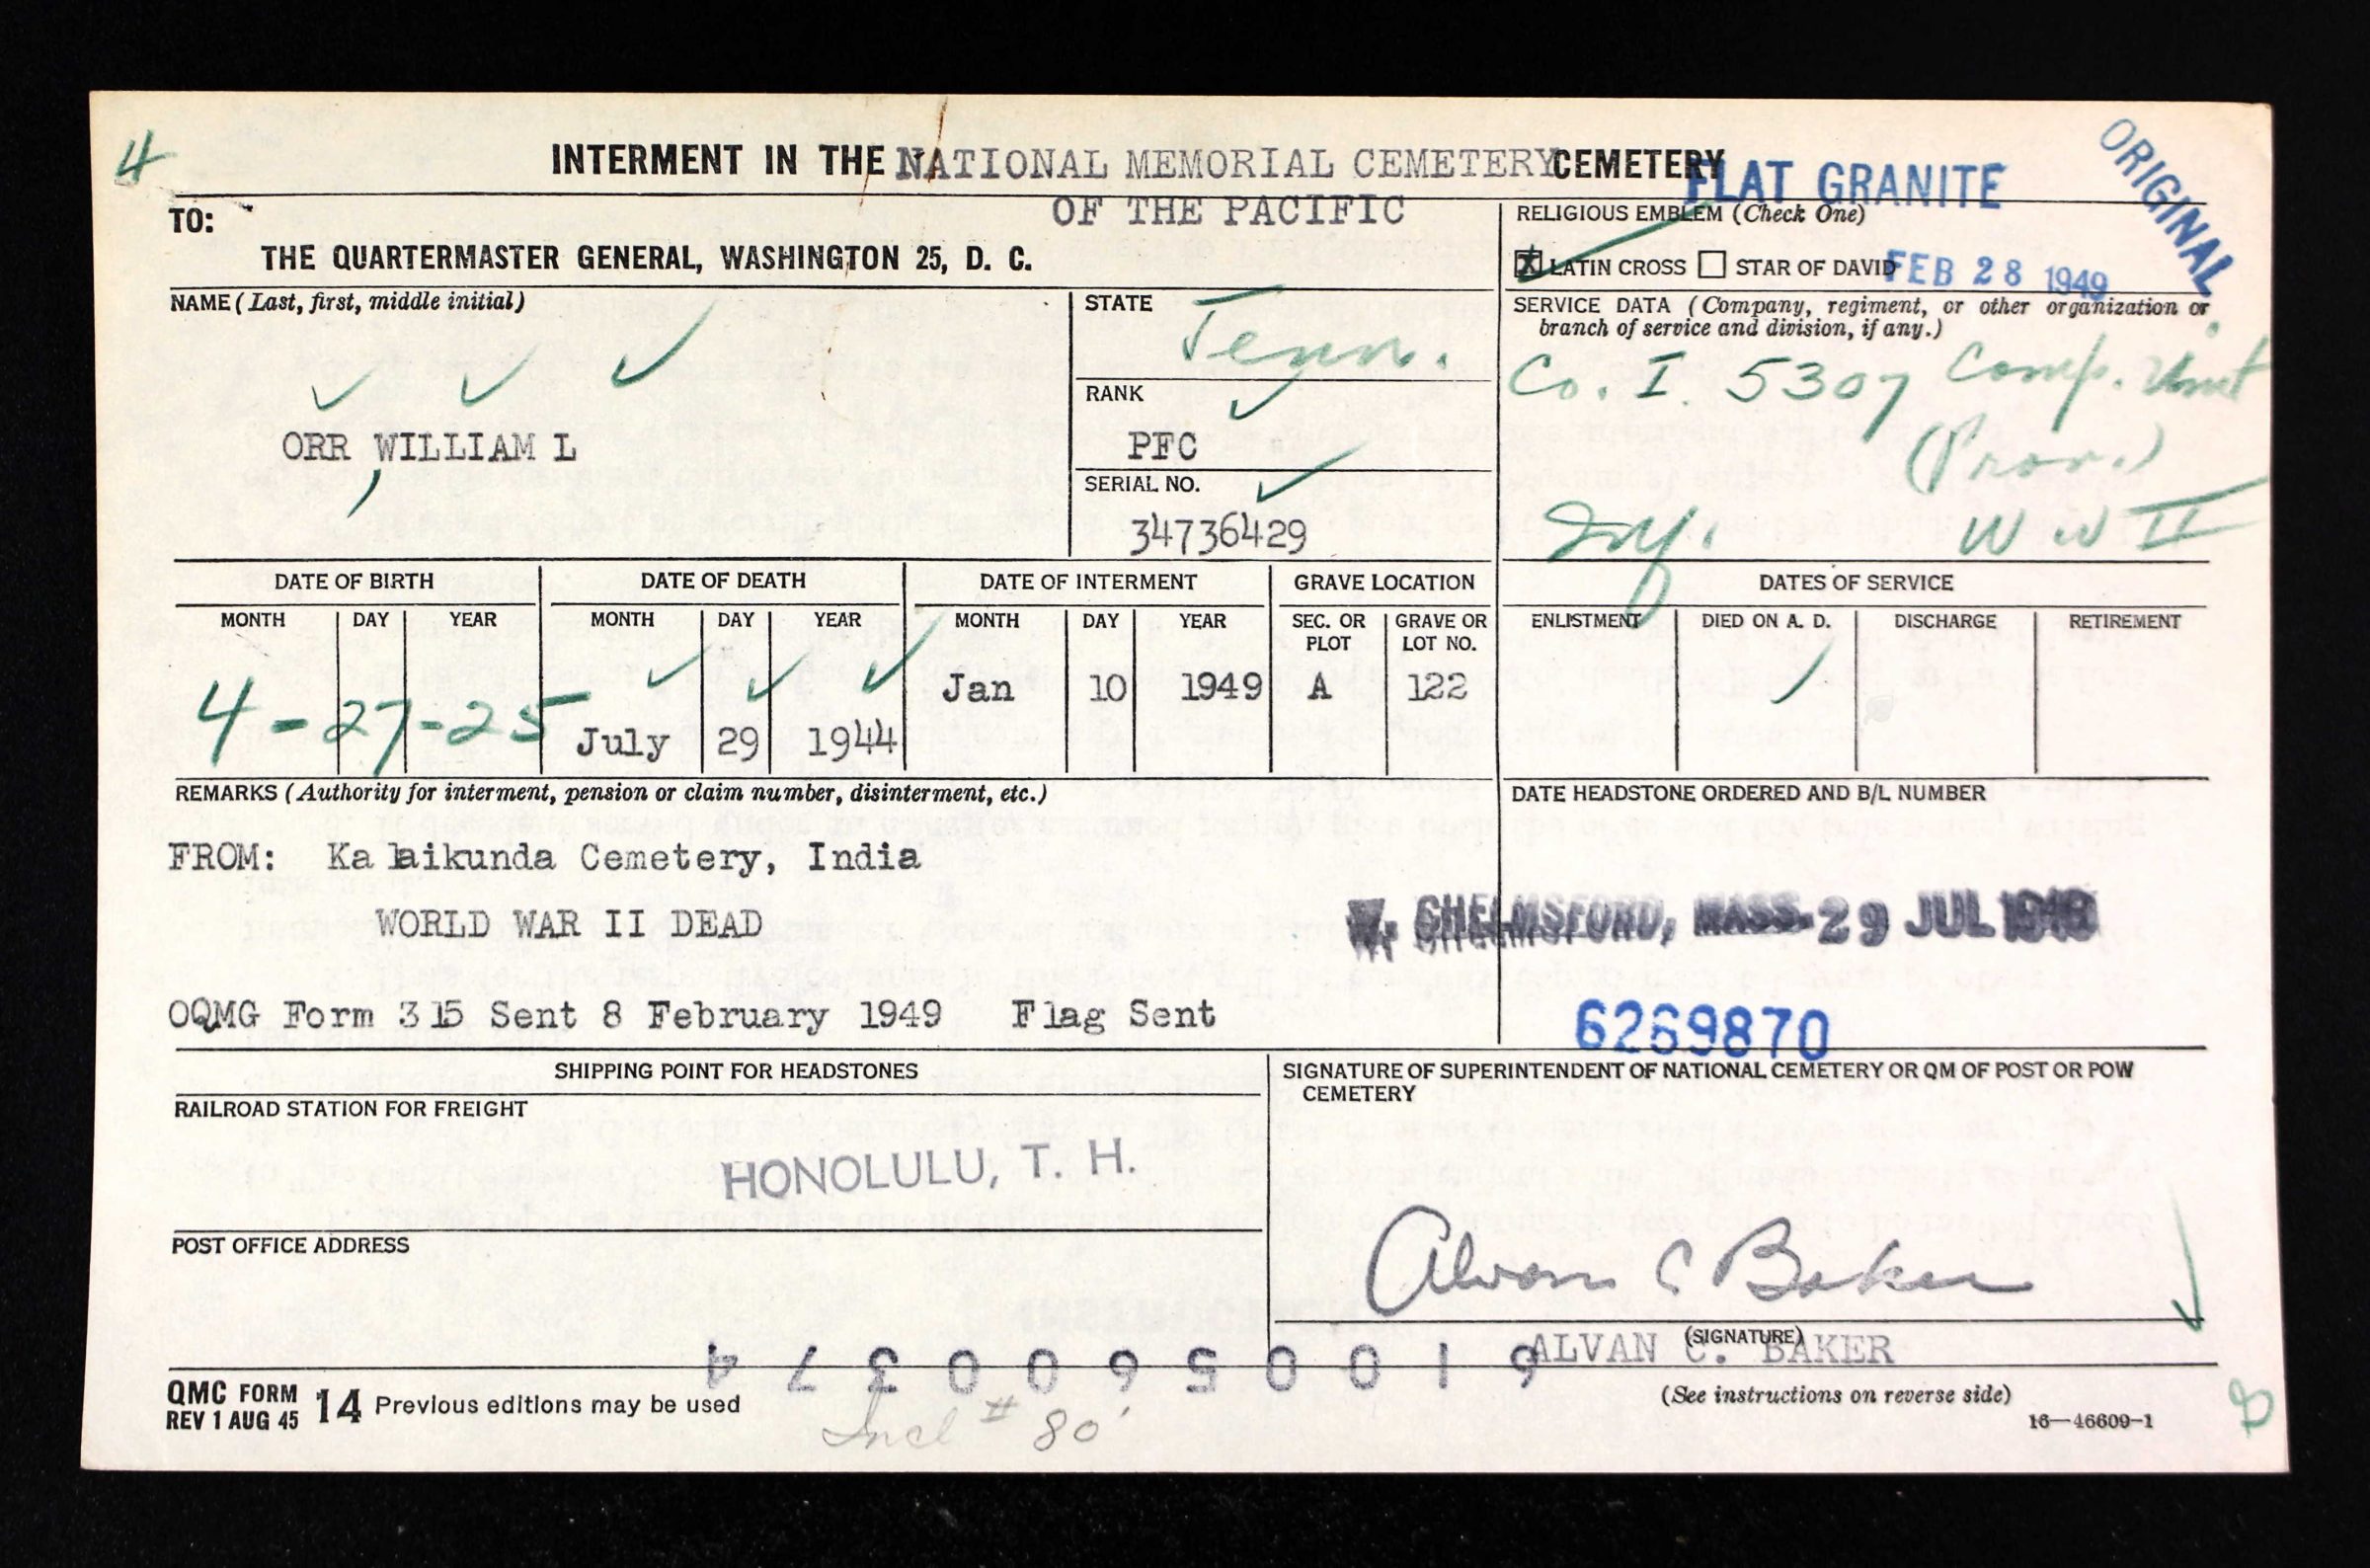 4
INTERMENT IN THE NATIONAL MEMORIAL CEMETERY CEMETERY
OF THE PACIFIC
FLAT GRANITE
ORIGINAL
TO:
THE QUARTERMASTER GENERAL, WASHINGTON 25, D. C.
RELIGIOUS EMBLEM (Check One)
X LATIN CROSS STAR OF DAVID
FEB 28 1949
NAME (Last, first, middle initial)
ORR, WILLIAM L
STATE
Tenn.
RANK
PFC
SERIAL NO.
34736429
SERVICE DATA (Company, regiment, or other organization or
branch of service and division, if any.)
Co. I. 5307 Comp. Unit
(Prov.)
Inf. W W II
DATE OF BIRTH
MONTH DAY YEAR
4-27-25
DATE OF DEATH
MONTH DAY YEAR
July 29 1944
DATE OF INTERMENT
MONTH DAY YEAR
Jan 10 1949
GRAVE LOCATION
SEC. OR PLOT GRAVE OR LOT NO.
A 122
DATES OF SERVICE
ENLISTMENT DIED ON A. D. DISCHARGE RETIREMENT
REMARKS (Authority for interment, pension or claim number, disinterment, etc.)
FROM: Kalaikunda Cemetery, India
WORLD WAR II DEAD
OQMG Form 315 Sent 8 February 1949 Flag Sent
DATE HEADSTONE ORDERED AND B/L NUMBER
W. CHELMSFORD, MASS. 29 JUL
6269870
SHIPPING POINT FOR HEADSTONES
RAILROAD STATION FOR FREIGHT
HONOLULU, T. H.
POST OFFICE ADDRESS
SIGNATURE OF SUPERINTENDENT OF NATIONAL CEMETERY OR QM OF POST OR POW
CEMETERY
Alvan C Baker
(SIGNATURE)
ALVAN C. BAKER
(See instructions on reverse side)
16—46609-1
QMC FORM 14 Previous editions may be used
REV 1 AUG 45
Incl # 80